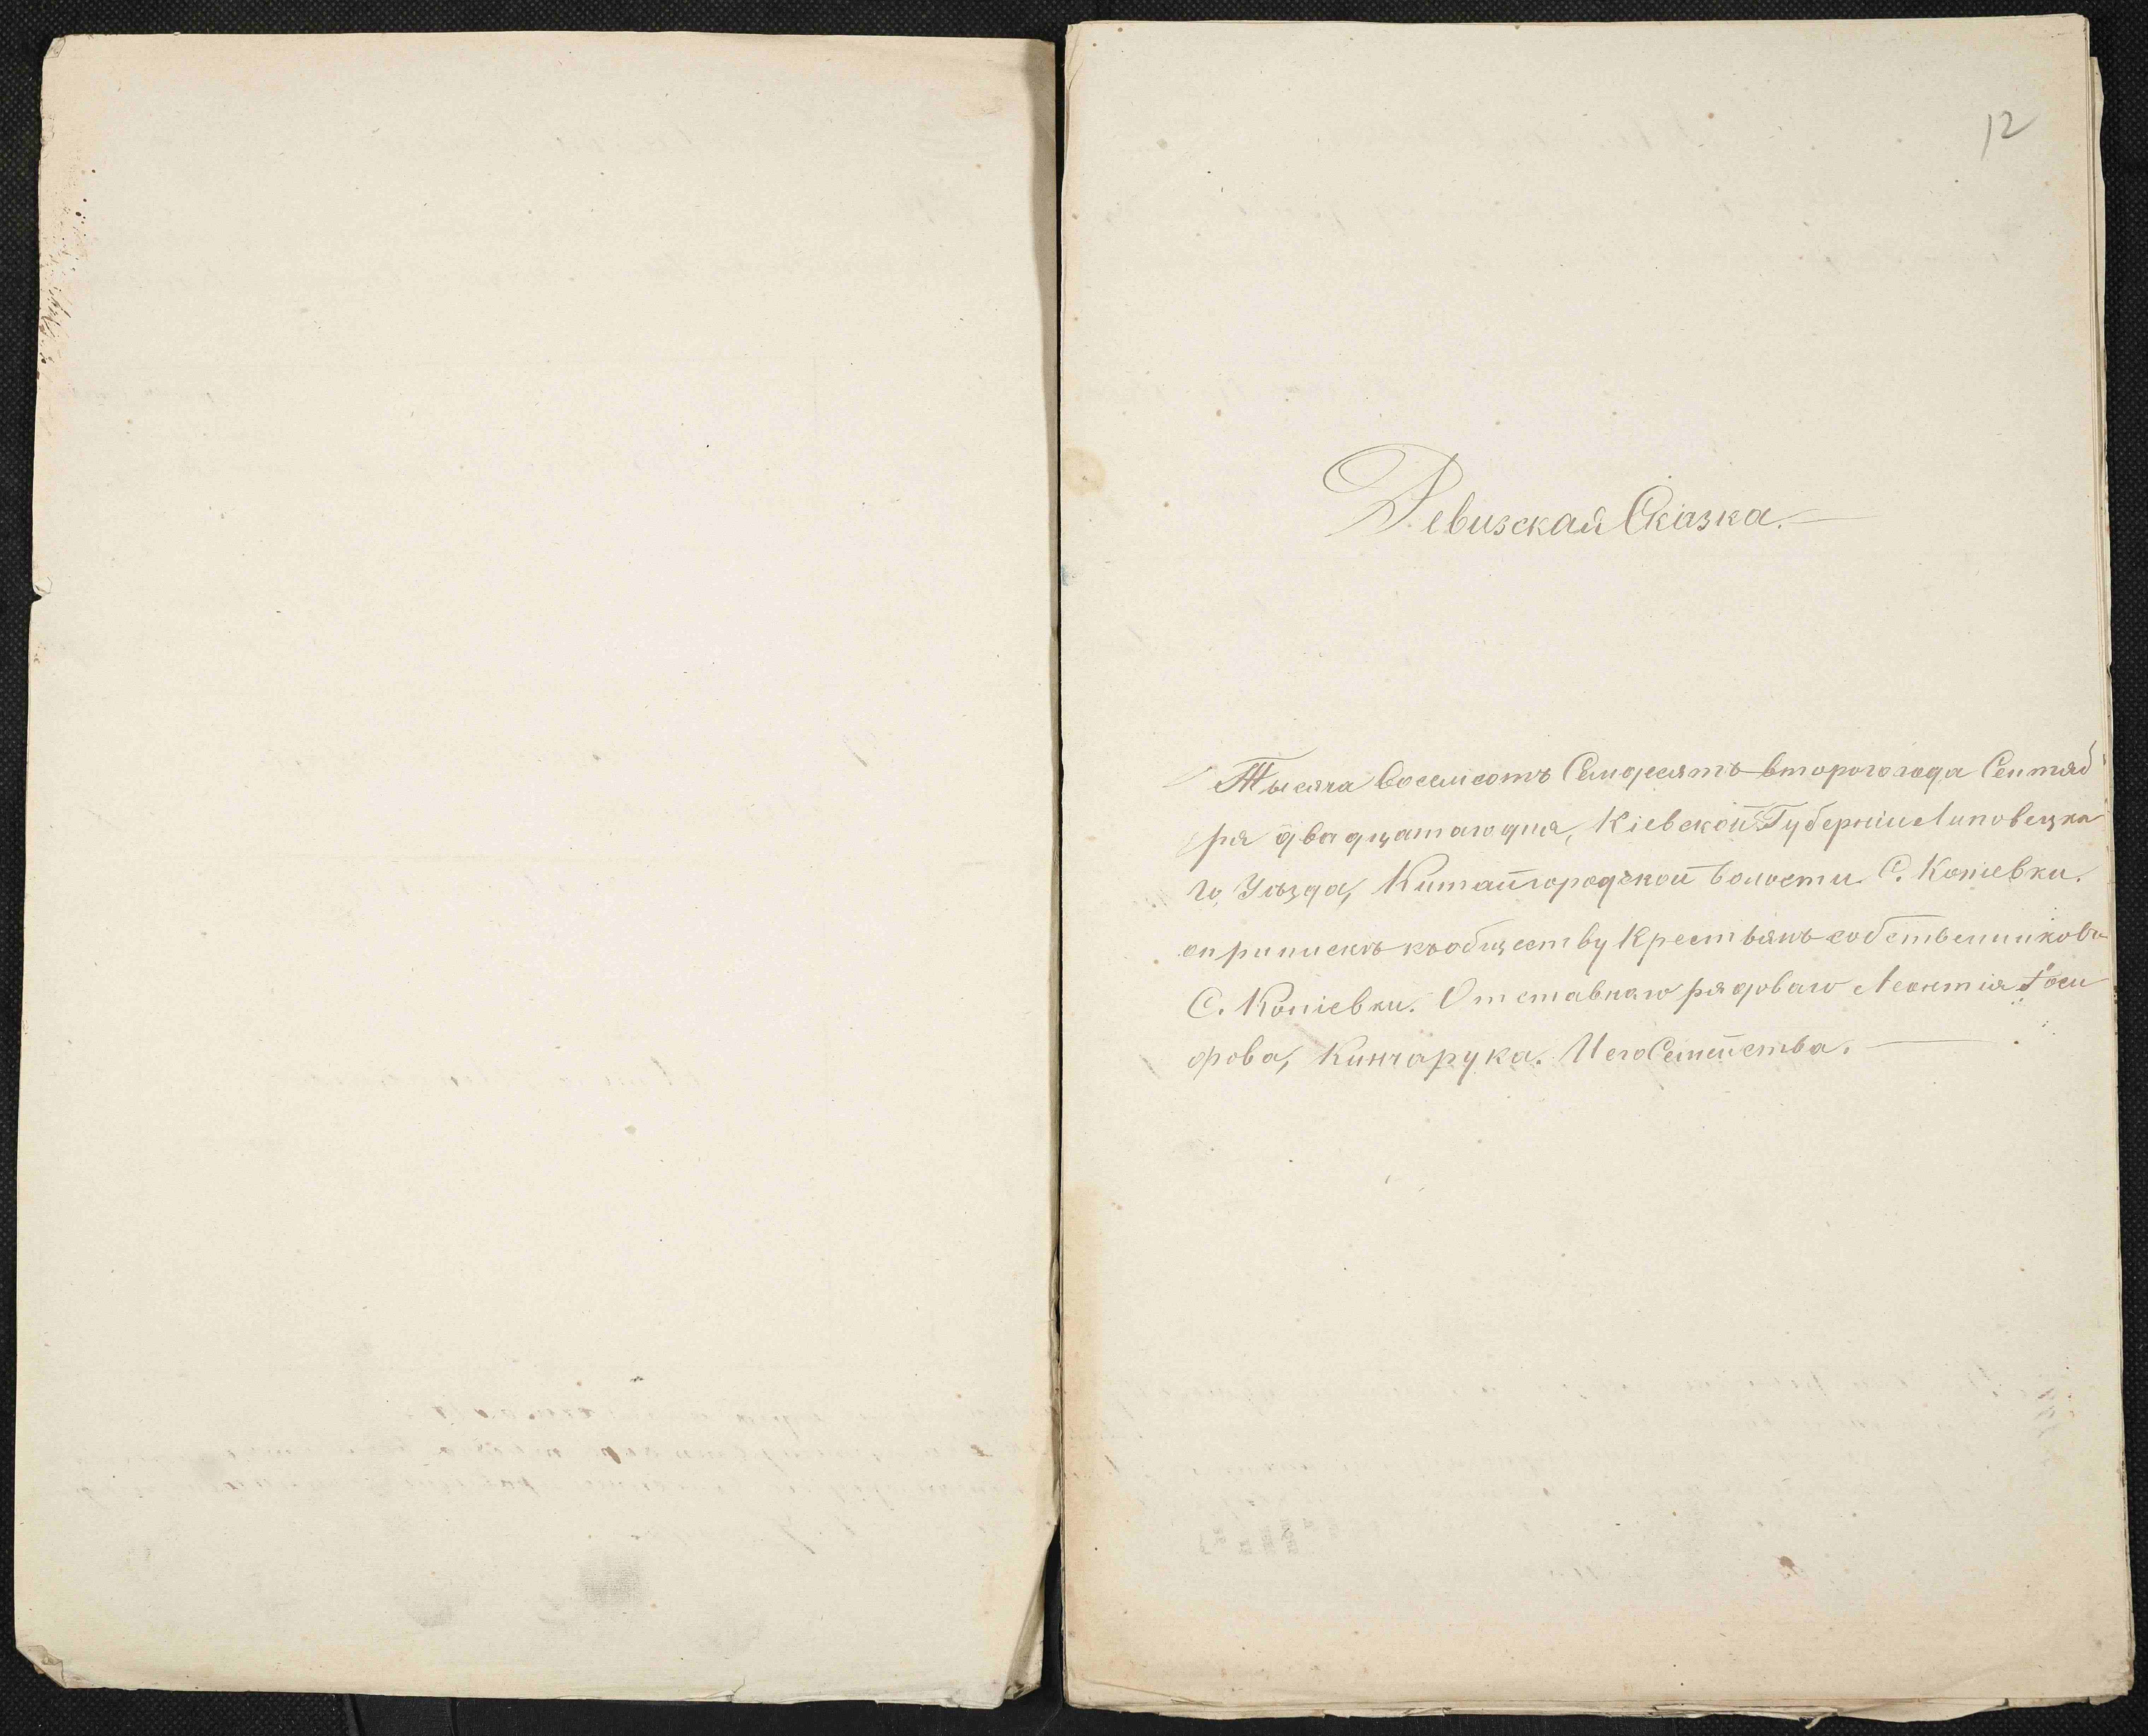 12
Ревизская Сказка.—
Тысяча Восемсотъ Семдесятъ второго года Сентяб
ря двадцатаго дня, Кіевской Губерніи Липовецка
го, Уѣзда, Китайгородской Волости С. Копіевки.
о припискѣ къ обществу Крестьянъ собственниковъ
С. Копіевки. Отставнаго рядоваго Леонтія Іоси
фова, Кинчарука. И его Семейства.—